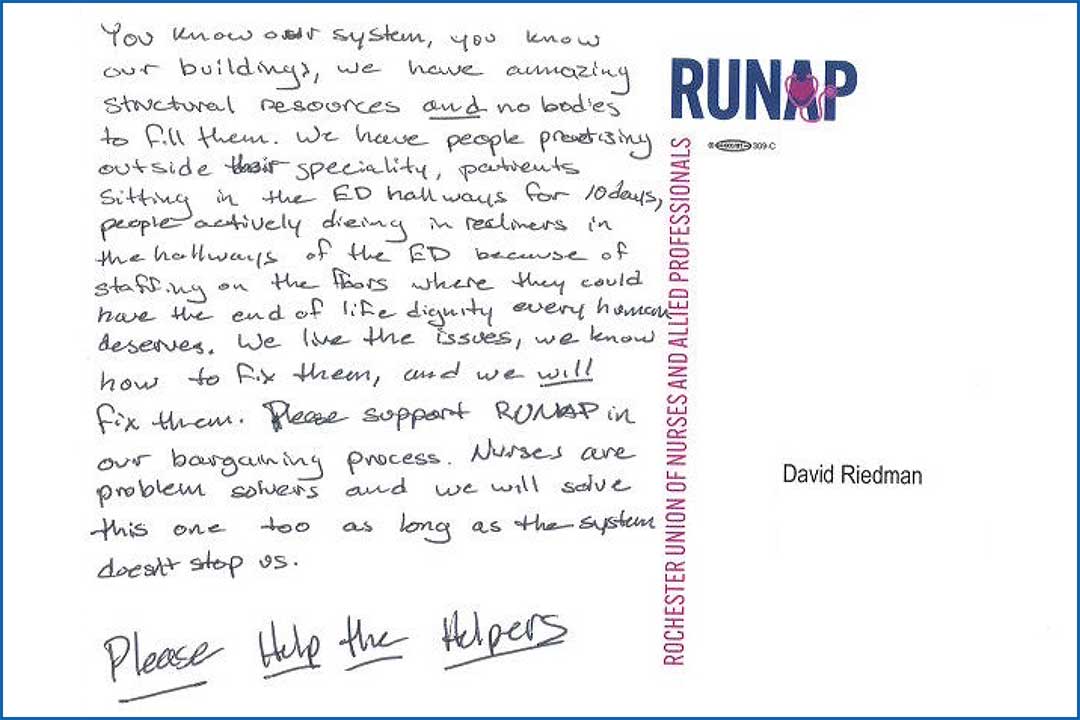 You know our system, you know
our buildings, we have amazing
structural resources and no bodies
to fill them. We have people practising
outside their speciality, patients
sitting in the ED hallways for 10 days,
people actively dieing in recliners in
the hallways of the ED because of
staffing on the floors where they could
have the end of life dignity every human
deserves. We live the issues, we know
how to fix them, and we will
fix them. Please support RUNAP in
our bargaining process. Nurses are
problem solvers and we will solve
this one too as long as the system
doesn't stop us.
Please Help the Helpers
RUNAP
309-C
ROCHESTER UNION OF NURSES AND ALLIED PROFESSIONALS
David Riedman